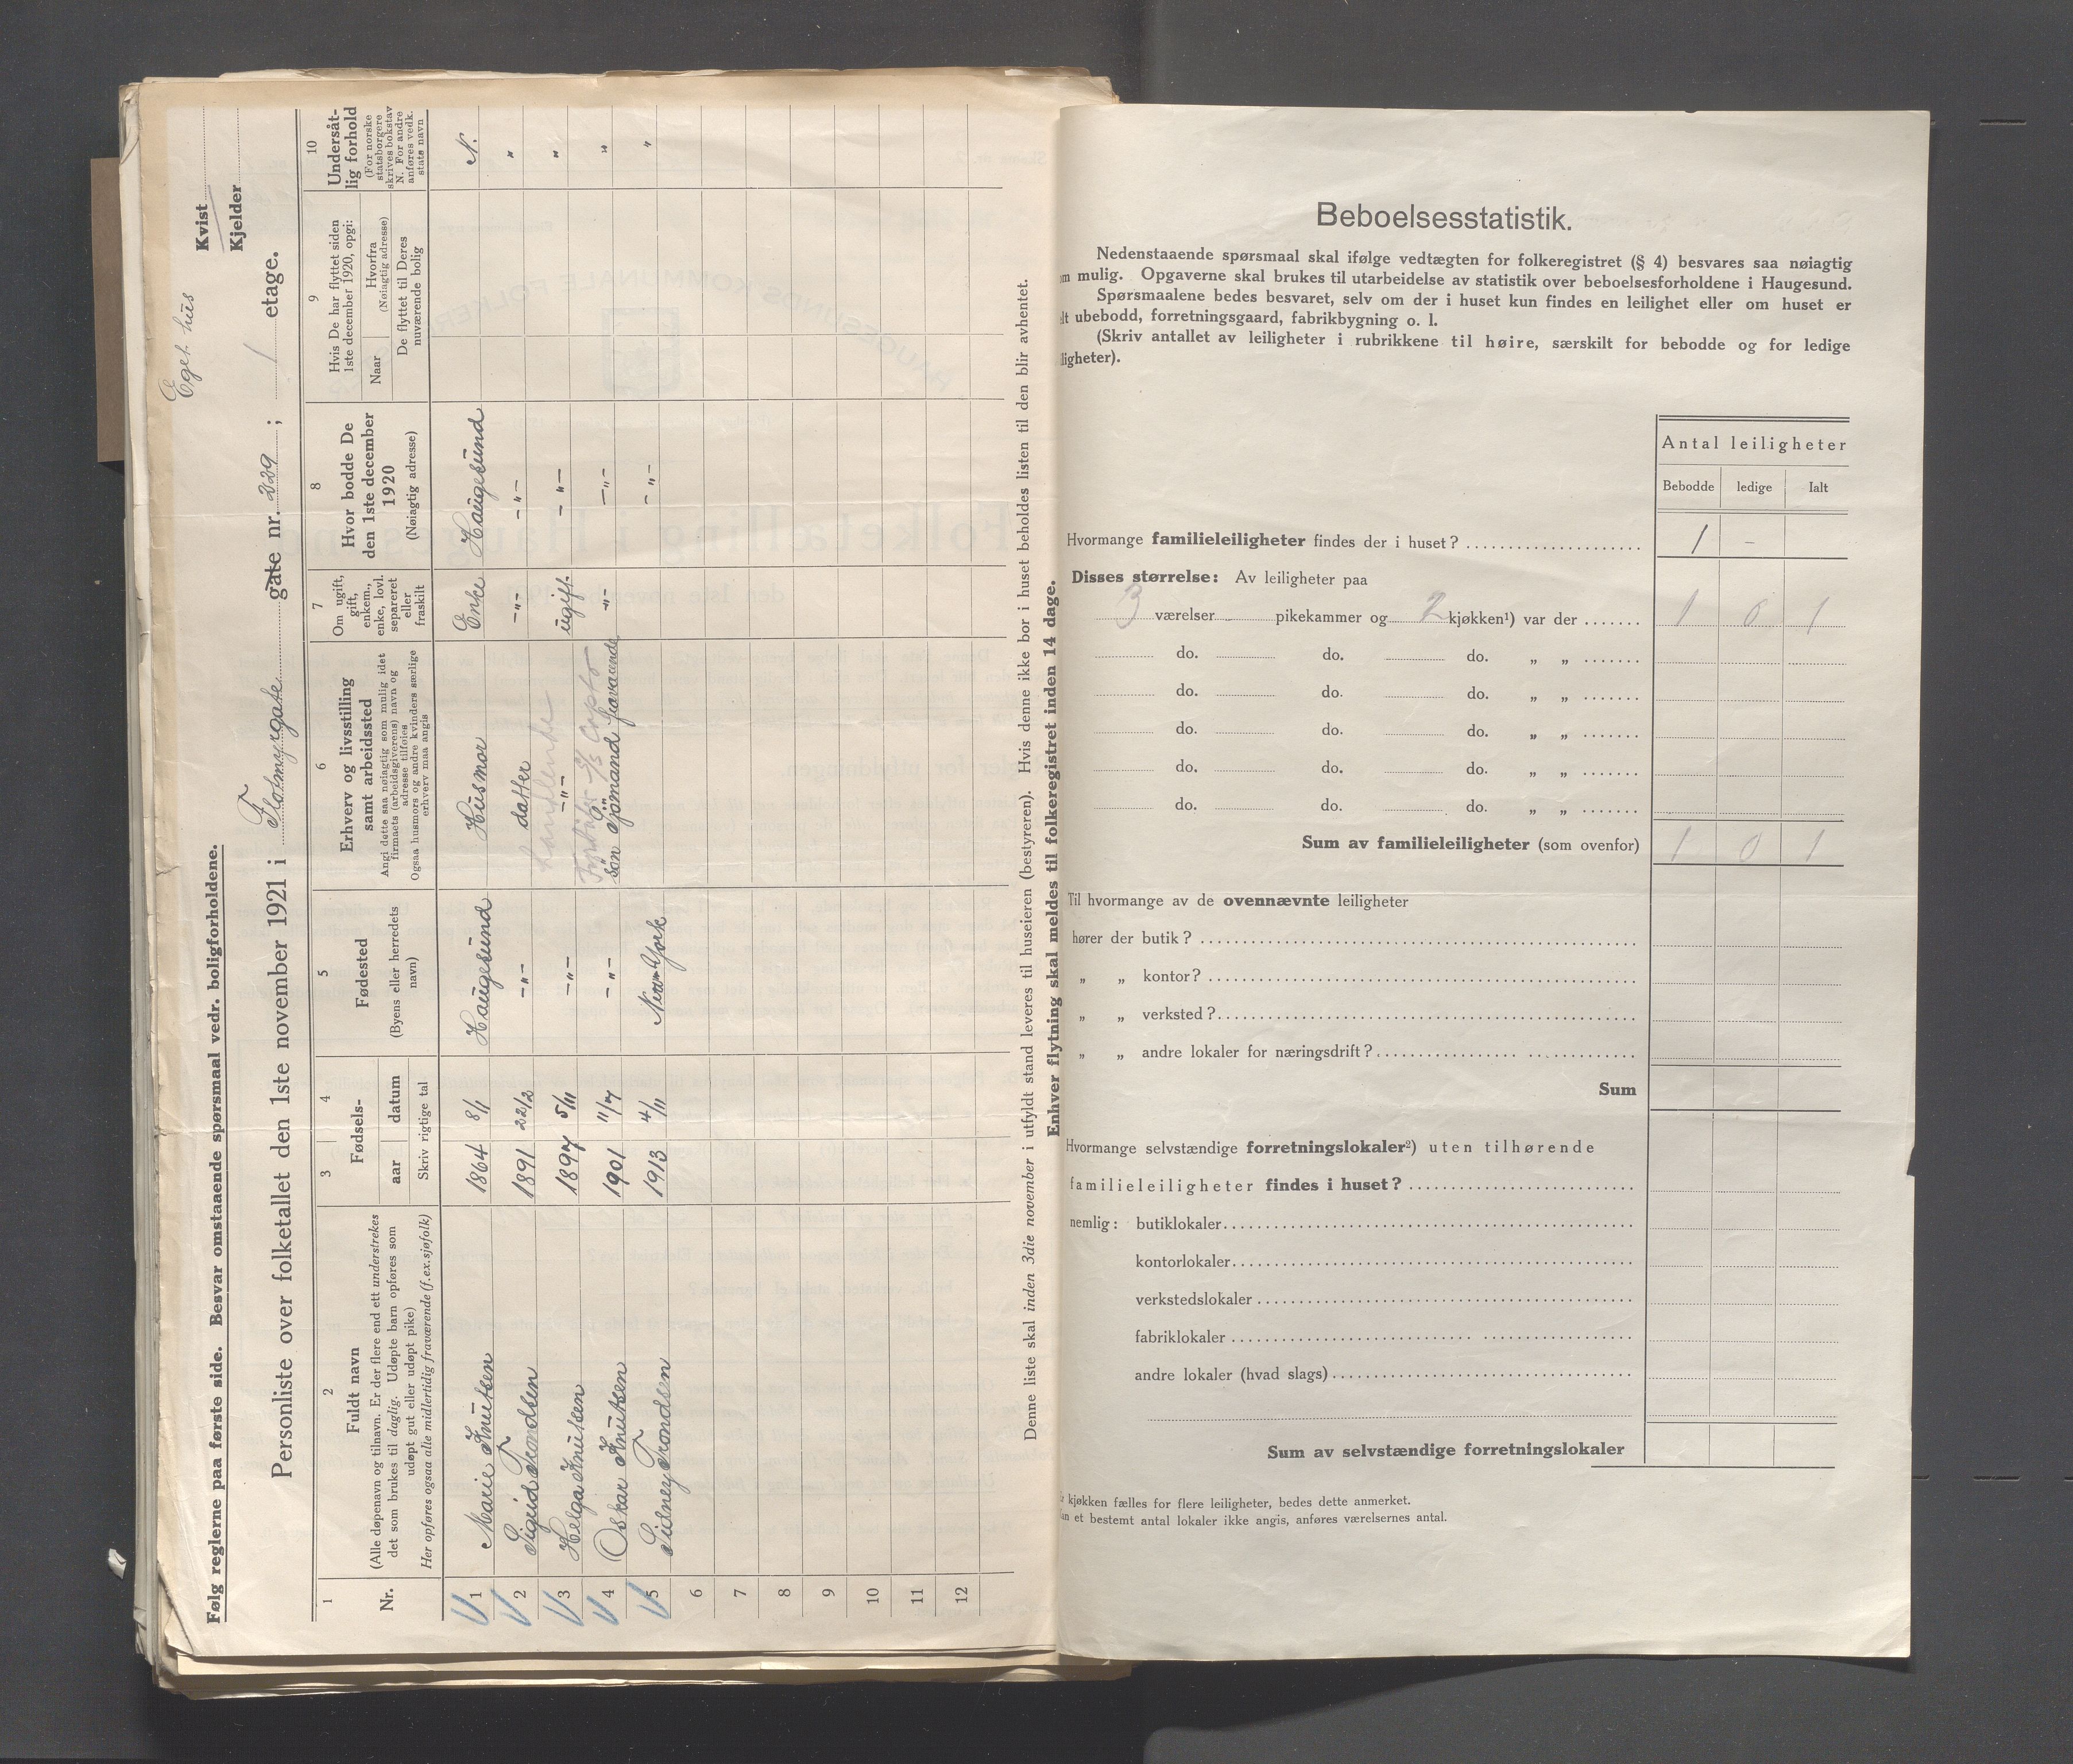 Følg reglerne paa første side. Besvar omstaaende spørsmaal vedr. boligforholdene.
Eget hus
Kvist
Kjelder
Personliste over folketallet den 1ste november 1921 i Flotmyrgate gate nr. 229 ; 1 etage.
1
Nr.
2
Fuldt navn
(Alle døpenavn og tilnavn. Er der flere end ett understrekes
det som brukes til daglig. Udøpte barn opføres som
udøpt gut eller udøpt pike)
Her opføres ogsaa alle midlertidig fraværende (f.ex. sjøfolk)
3 4
Fødsels-
aar datum
Skriv rigtige tal
5
Fødested
(Byens eller herredets
navn)
6
Erhverv og livsstilling
samt arbeidssted
Angi dette saa nøiagtig som mulig idet
firmaets (arbeidsgiverens) navn og
adresse tilføies
Ogsaa husmors og andre kvinders særlige
erhverv maa angis
7
Om ugift,
gift,
enkem.,
enke, lovl.
separeret
eller
fraskilt
8
Hvor bodde De
den 1ste december
1920
(Nøiagtig adresse)
9
Hvis De har flyttet siden
1ste december 1920, opgi:
Naar
Hvorfra
(Nøiagtig adresse)
De flyttet til Deres
nuværende bolig
10
Undersåt-
lig forhold
(For norske
statsborgere
skrives bokstav
N. For andre
anføres vedk.
stats navn
1 Marie Knutsen 1864 8/1 Haugesund Husmor Enke Haugesund N.
2 Sigrid Trondsen 1891 22/2 -"- datter -"- -"- "
3 Helga Knutsen 1897 5/11 -"- -"- ugift. -"- "
4 Oskar Knutsen 1901 11/7 -"- søn Sjømand fraværende -"- -"- "
5 Sidney Trondsen 1913 4/11 New-York -"- "
6
7
8
9
10
11
12
Denne liste skal inden 3die november i utfyldt stand leveres til huseieren (bestyreren). Hvis denne ikke bor i huset beholdes listen til den blir avhentet.
Enhver flytning skal meldes til folkeregistret inden 14 dage.
Beboelsesstatistik.
Nedenstaaende spørsmaal skal ifølge vedtægten for folkeregistret (§ 4) besvares saa nøiagtig
m mulig. Opgaverne skal brukes til utarbeidelse av statistik over beboelsesforholdene i Haugesund.
Spørsmaalene bedes besvaret, selv om der i huset kun findes en leilighet eller om huset er
lt ubebodd, forretningsgaard, fabrikbygning o. l.
(Skriv antallet av leiligheter i rubrikkene til høire, særskilt for bebodde og for ledige
ligheter).
Antal leiligheter
Bebodde ledige Ialt
Hvormange familieleiligheter findes der i huset? 1 -
Disses størrelse: Av leiligheter paa
3 værelser pikekammer og 2 kjøkken¹) var der 1 0 1
do. do. do. „ „
do. do. do. „ „
do. do. do. „ „
do. do. do. „ „
do. do. do. „ „
Sum av familieleiligheter (som ovenfor) 1 0 1
Til hvormange av de ovennævnte leiligheter
hører der butik?
„ „ kontor?
„ „ verksted?
„ „ andre lokaler for næringsdrift?
Sum
Hvormange selvstændige forretningslokaler²) uten tilhørende
familieleiligheter findes i huset?
nemlig: butiklokaler
kontorlokaler
verkstedslokaler
fabriklokaler
andre lokaler (hvad slags)
Sum av selvstændige forretningslokaler
kjøkken fælles for flere leiligheter, bedes dette anmerket.
et bestemt antal lokaler ikke angis, anføres værelsernes antal.